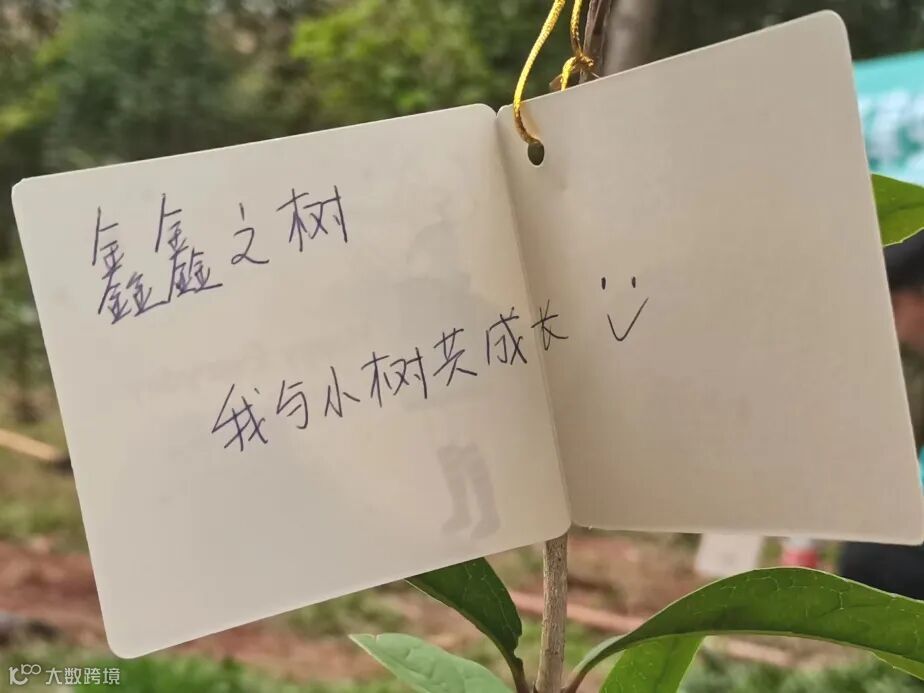 鑫鑫之树
我与小树共成长
大数跨境